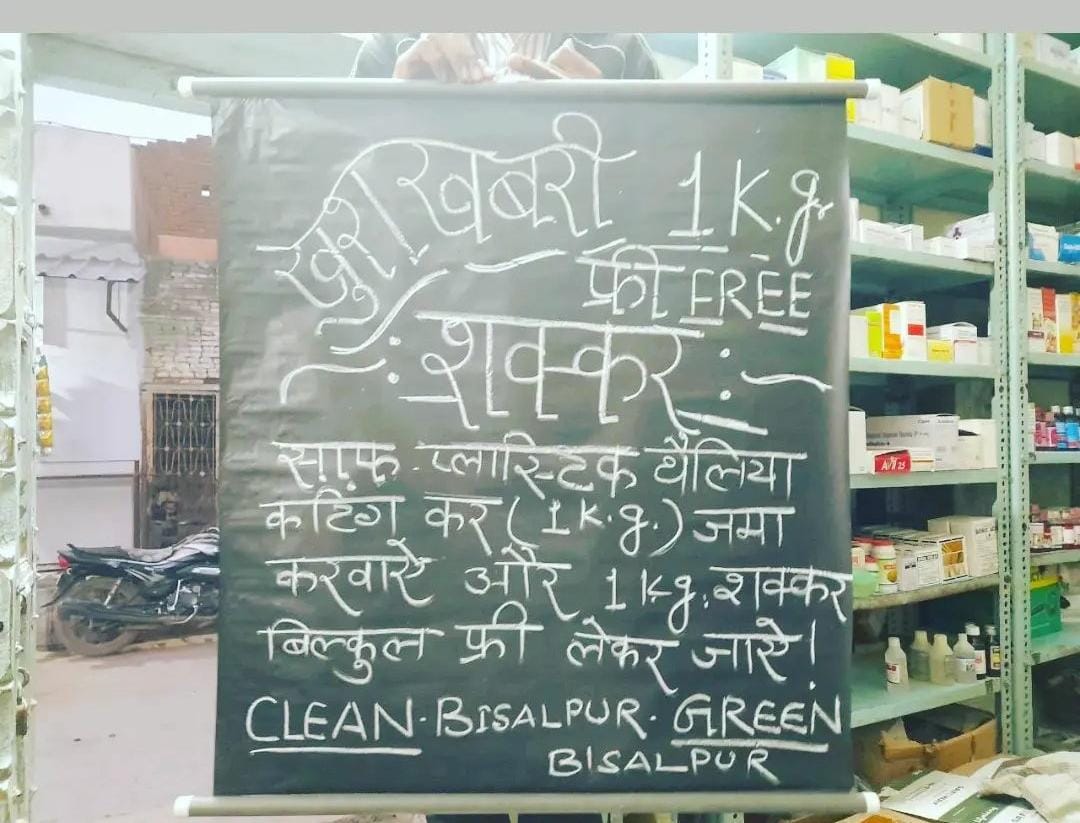 खुशखबरी 1 K.g.
फ्री FREE
: शक्कर :
साफ़ प्लास्टिक थैलिया
कटिंग कर (1 K.g.) जमा
करवाऐ और 1 kg. शक्कर
बिल्कुल फ्री लेकर जाऐ!
CLEAN. BISALPUR. GREEN
BISALPUR